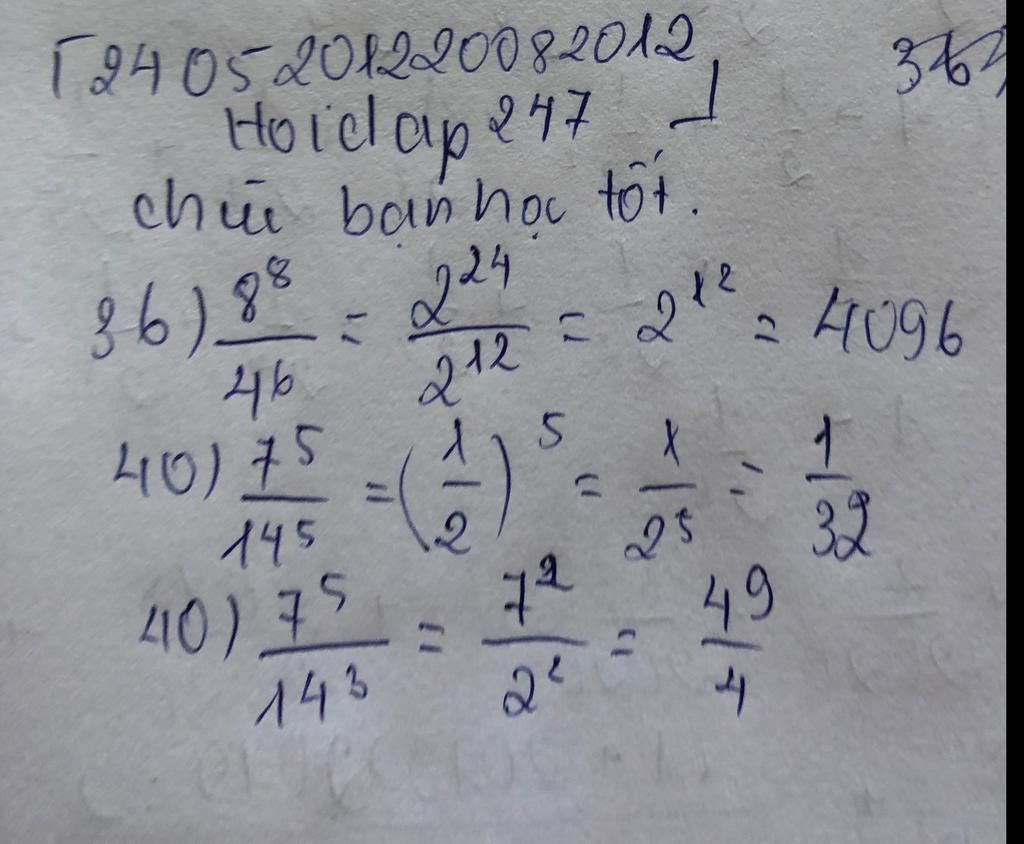 [2405201220082012
Hoidap247 ]
chúc bạn học tốt.
36) 8^8/4^6 = 2^24/2^12 = 2^12 = 4096
40) 7^5/14^5 = (1/2)^5 = 1/2^5 = 1/32
40) 7^5/14^3 = 7^2/2^2 = 49/4